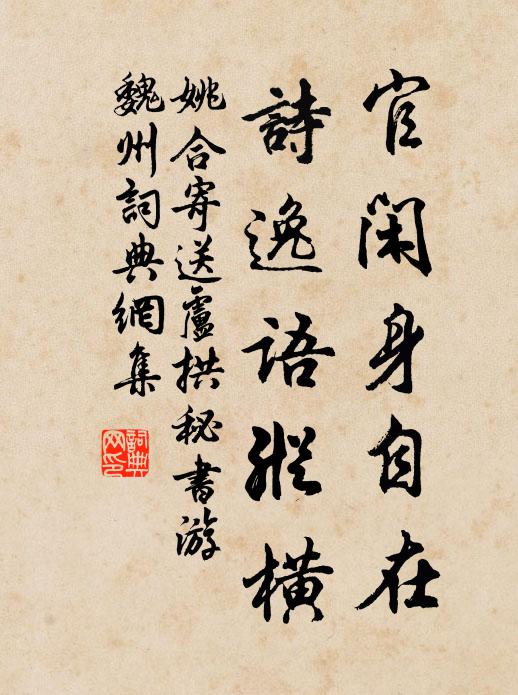 官閑身自在
詩逸語縱橫
姚合寄送盧拱秘書游
魏州詞典網集
詞典
网印